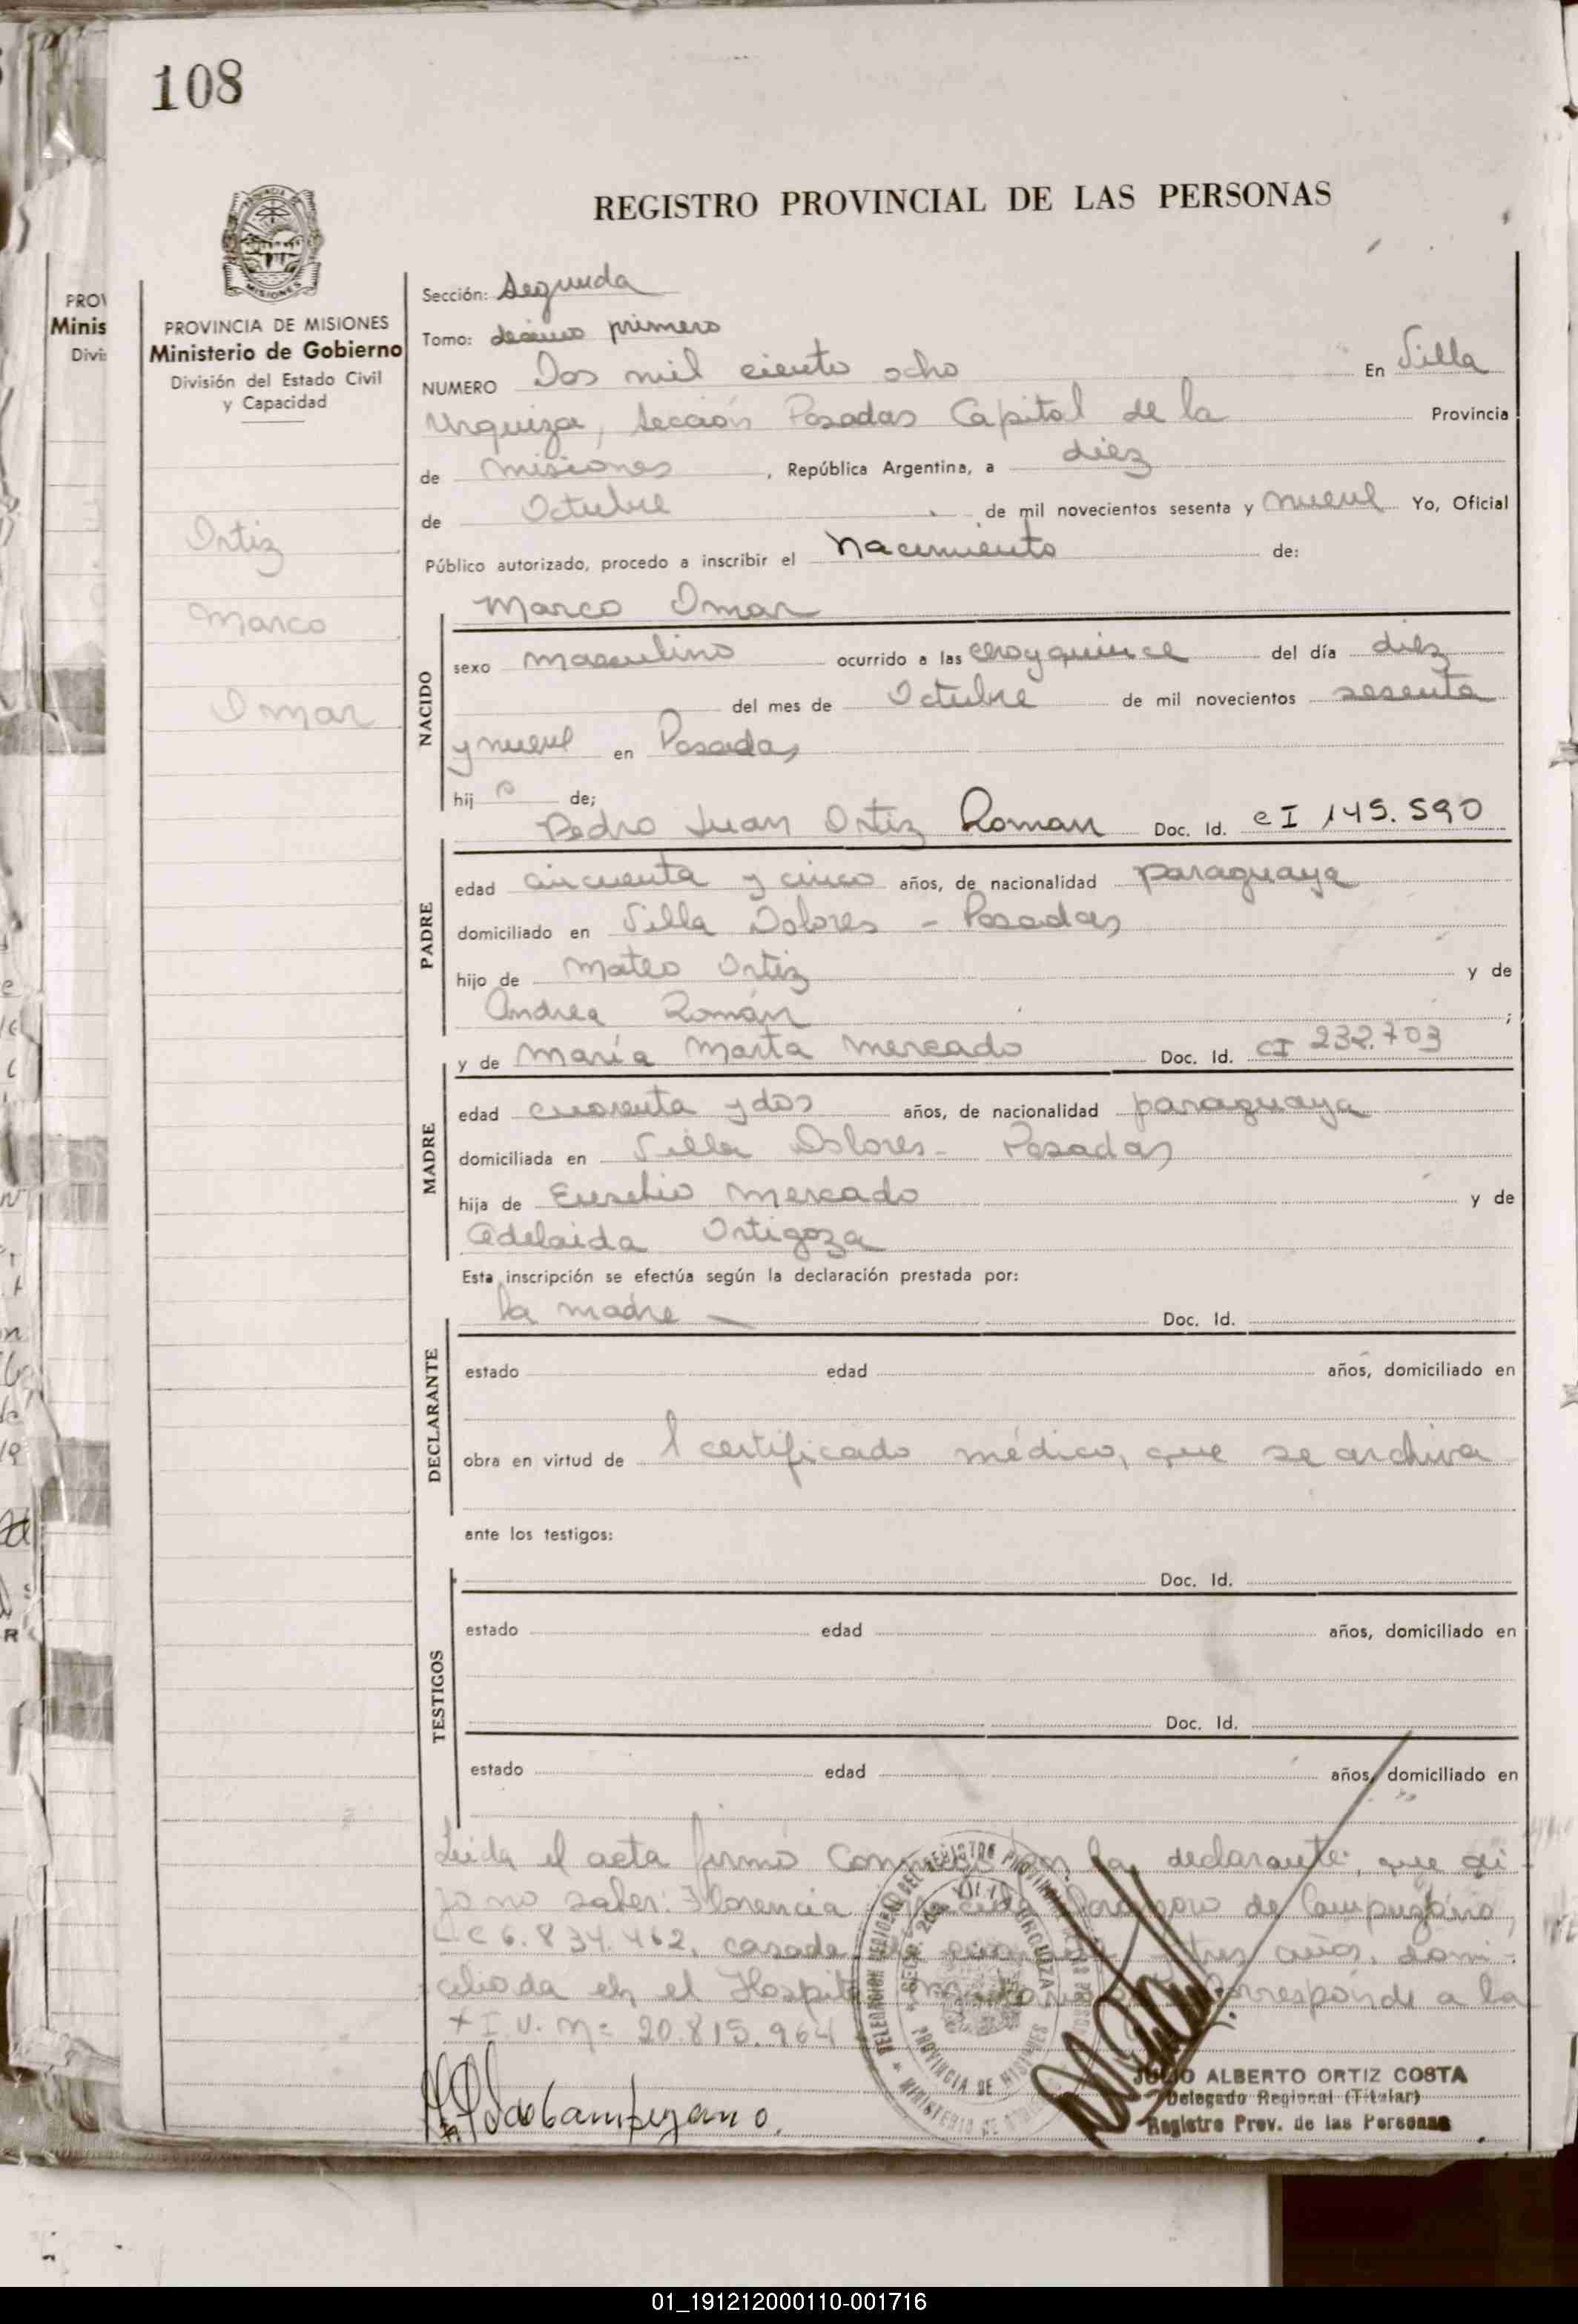 108
REGISTRO PROVINCIAL DE LAS PERSONAS
MISIONES
PROVINCIA DE MISIONES
Ministerio de Gobierno
División del Estado Civil
y Capacidad
Ortiz
Marco
Omar
Sección: Segunda
Tomo: décimo primero
NUMERO Dos mil ciento ocho En Villa
Urquiza, Sección Posadas Capital de la Provincia
de Misiones, República Argentina, a diez
de Octubre de mil novecientos sesenta y nueve Yo, Oficial
Público autorizado, procedo a inscribir el Nacimiento de:
Marco Omar
NACIDO
sexo masculino ocurrido a las cero y quince del día diez
del mes de Octubre de mil novecientos sesenta
y nueve en Posadas
hij o de;
Pedro Juan Ortiz Roman Doc. Id. CI 145.590
PADRE
edad cincuenta y cinco años, de nacionalidad paraguaya
domiciliado en Villa Dolores - Posadas
hijo de Mateo Ortiz y de
Andrea Román ;
y de María Marta Mercado Doc. Id. CI 232.703
MADRE
edad cuarenta y dos años, de nacionalidad paraguaya
domiciliada en Villa Dolores - Posadas
hija de Eusebio Mercado y de
Adelaida Ortigoza
Esta inscripción se efectúa según la declaración prestada por:
la madre Doc. Id.
DECLARANTE
estado edad años, domiciliado en
obra en virtud de l certificado médico, que se archiva
ante los testigos:
Doc. Id.
TESTIGOS
estado edad años, domiciliado en
Doc. Id.
estado edad años, domiciliado en
Leida el acta firmó conmigo por la declarante, que di-
jo no saber: Florencia de Campuzano,
L.C 6.834.462, casada tres años, domi-
ciliada en el Hospital corresponde a la
I.U. Nº 20.815.964
JULIO ALBERTO ORTIZ COSTA
Delegado Regional (Titular)
Registro Prov. de las Personas
01_191212000110-001716